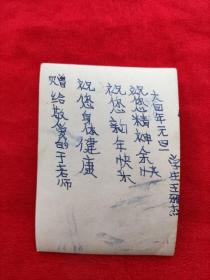 赠给敬爱的于老师
祝您身体健康
祝您新年快乐
祝您精神愉快
六四年元旦
学生王